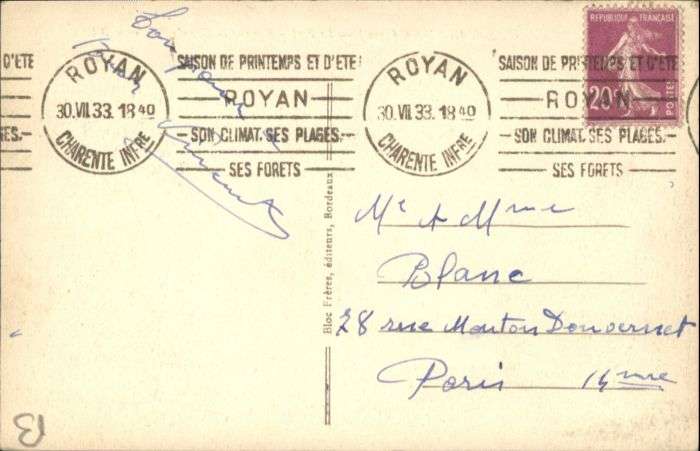 ROYAN
30.VII.33. 18 40
CHARENTE INFRE
SAISON DE PRINTEMPS ET D'ETE
ROYAN
SON CLIMAT. SES PLAGES.
SES FORETS
ROYAN
30.VII.33. 18 40
CHARENTE INFRE
SAISON DE PRINTEMPS ET D'ETE
ROYAN
SON CLIMAT. SES PLAGES.
SES FORETS
D'ETE
GES.
REPUBLIQUE FRANÇAISE
20c
POSTES
Bloc Frères, éditeurs, Bordeaux
Mr & Mme
Blanc
28 rue Mouton Duvernet
Paris 14eme
B